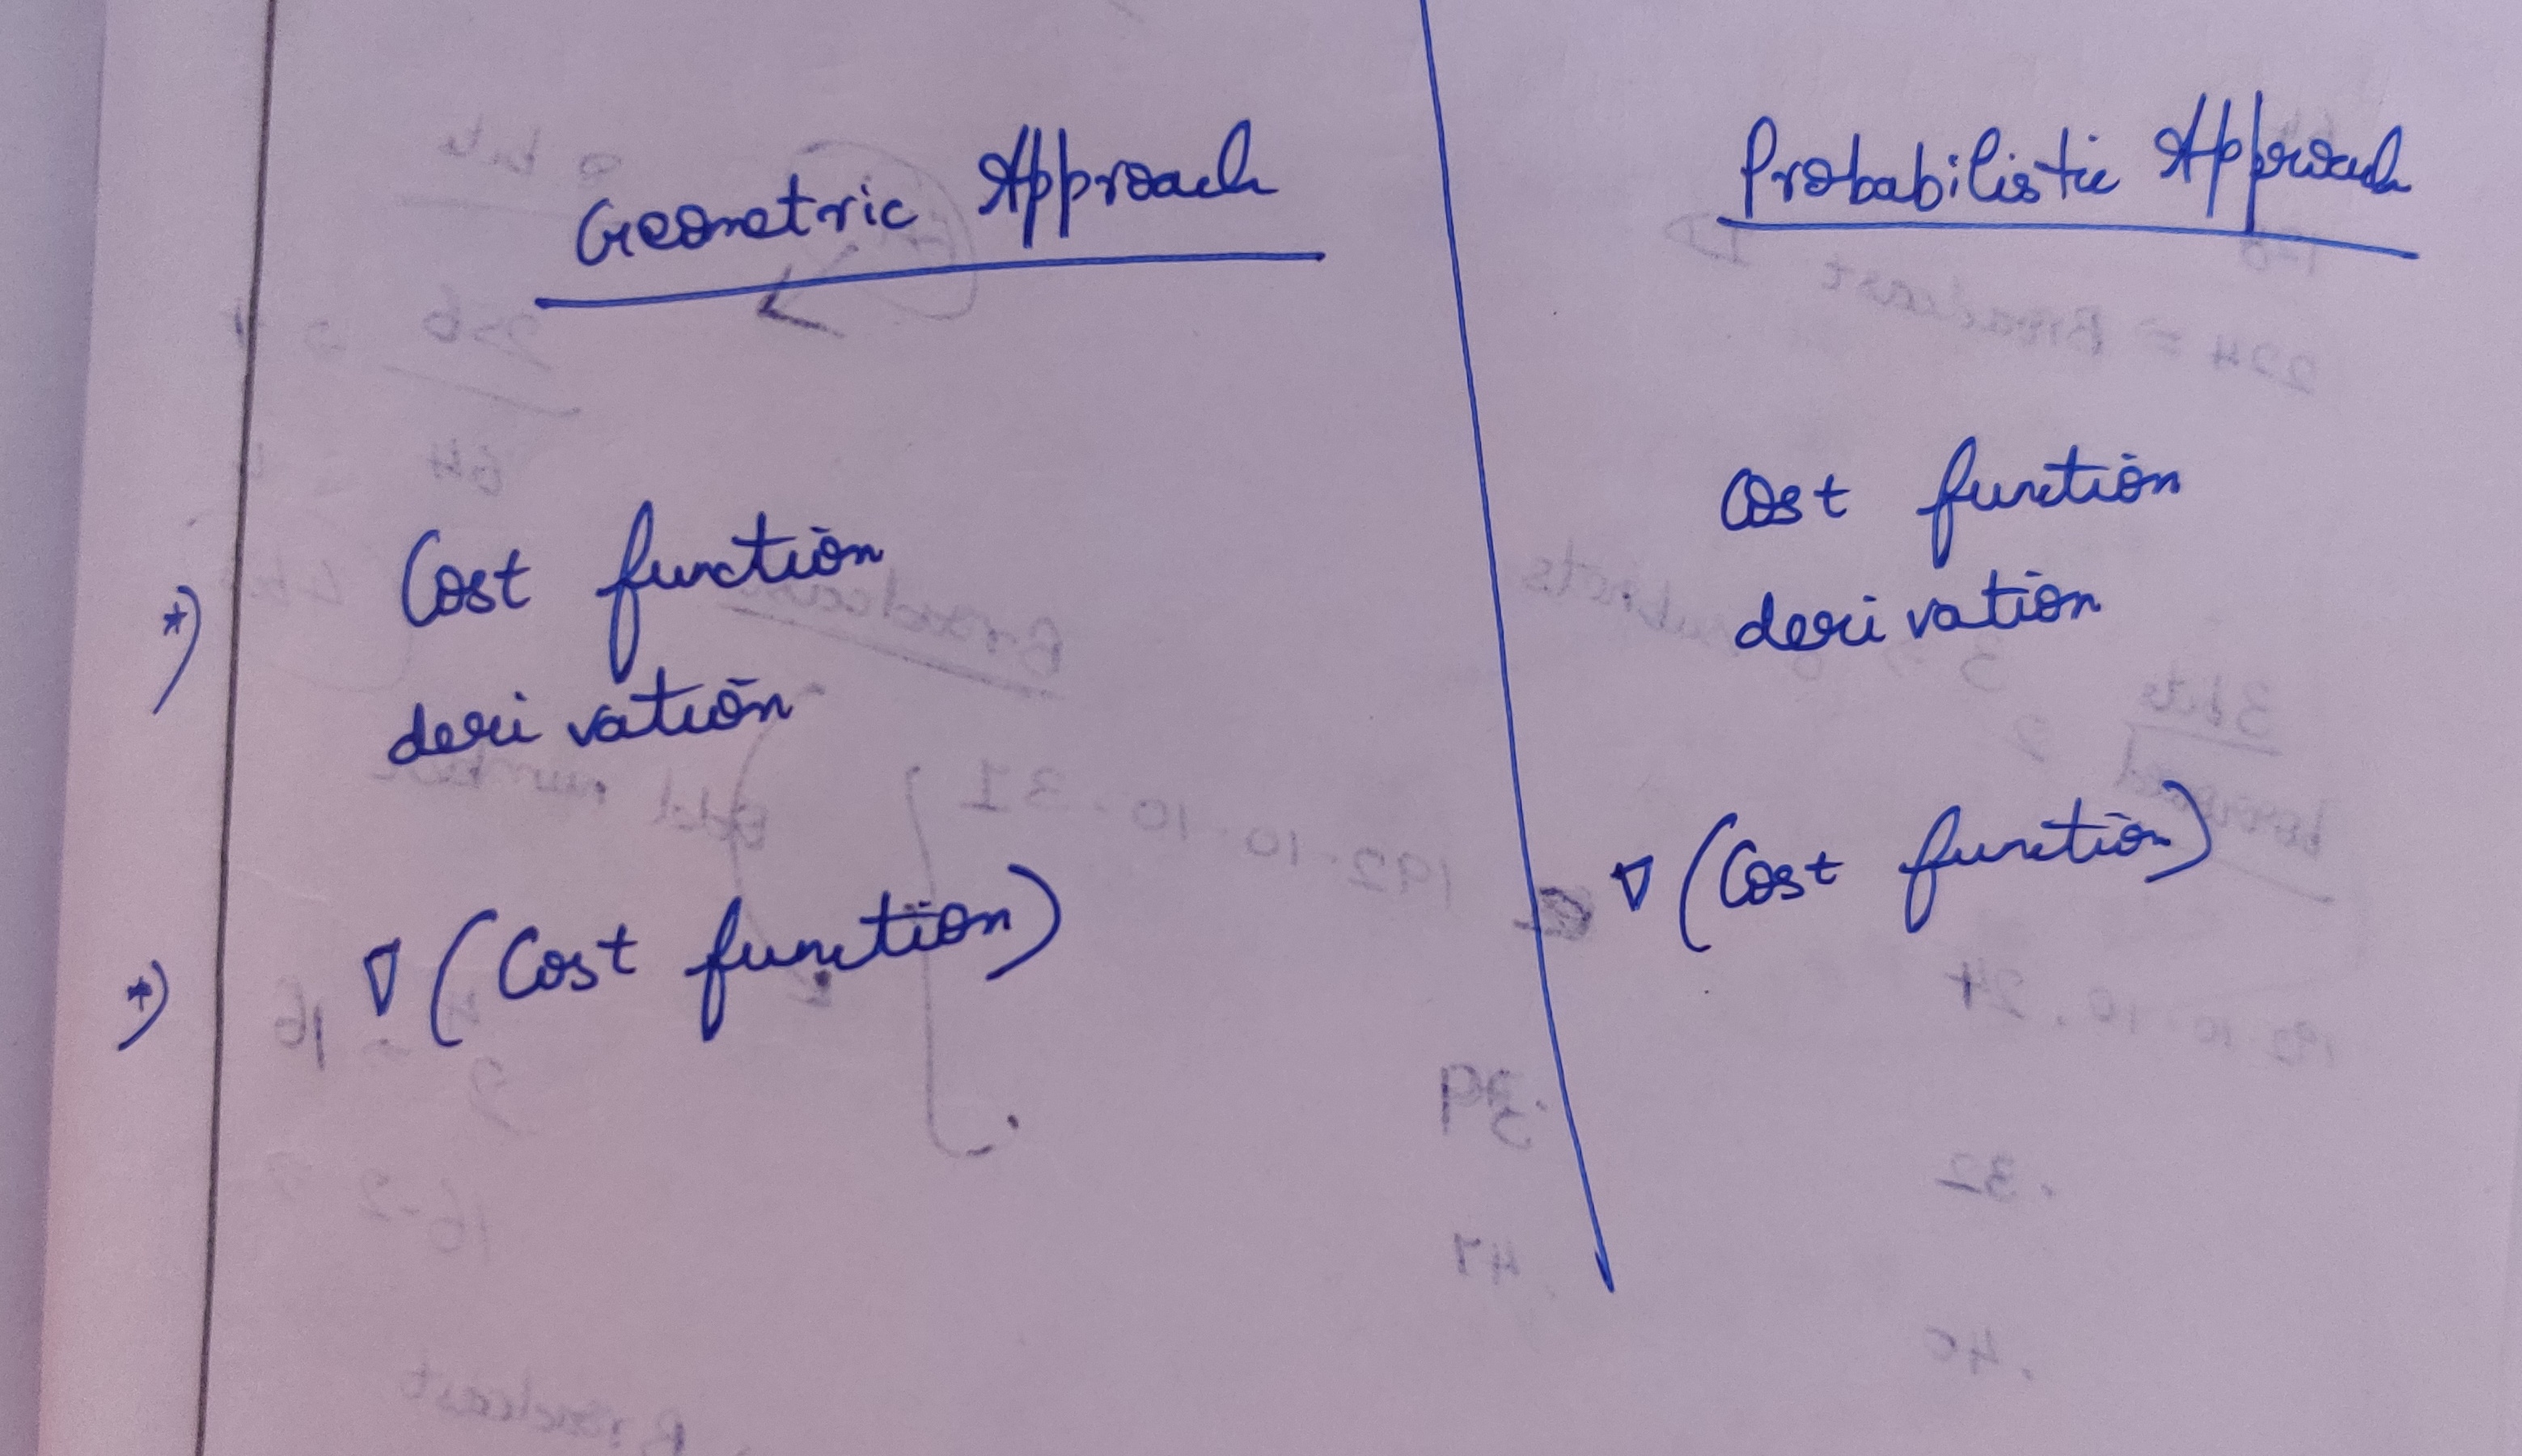 Geometric Approach
*) Cost function
derivation
*) ∇ (Cost function)
Probabilistic Approach
Cost function
derivation
∇ (Cost function)